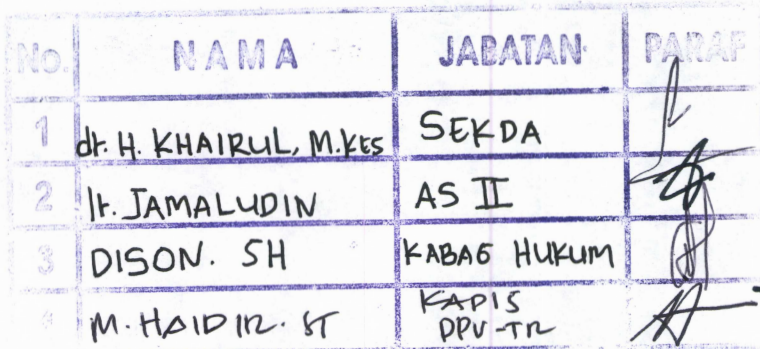 No. NAMA JABATAN PARAF
1 dr. H. KHAIRUL, M.KES SEKDA
2 Ir. JAMALUDIN AS II
3 DISON. SH KABAG HUKUM
4 M. HAIDIR. ST KADIS
DPU-TR